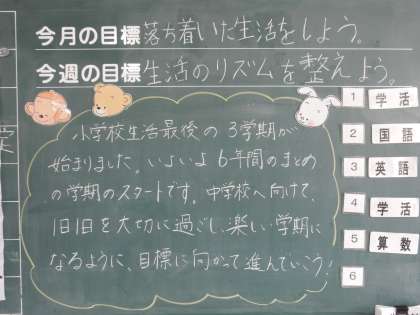 今月の目標 落ち着いた生活をしよう。
今週の目標 生活のリズムを整えよう。
小学校生活最後の3学期が
始まりました。いよいよ6年間のまとめ
の学期のスタートです。中学校へ向けて、
1日1日を大切に過ごし、楽しい学期に
なるように、目標に向かって進んでいこう!
1 学活
2 国語
3 英語
4 学活
5 算数
6